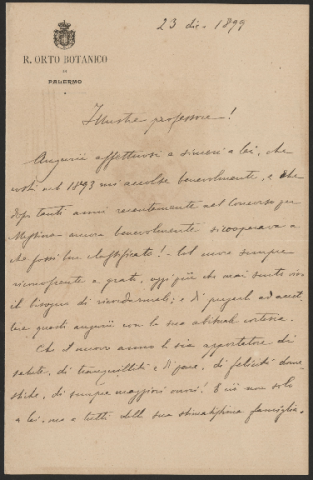 23 dic. 1899
R. ORTO BOTANICO
DI
PALERMO
Illustre professore!
Auguri affettuosi e sinceri a lei, che
costì nel 1893 mi accolse benevolmente, e che
dopo tanti anni recentemente nel Concorso per
Messina ancora benevolmente si cooperava a
che fossi ben classificato! Col cuore sempre
riconoscente e grato, oggi più che mai sento vivo
il bisogno di ricordarmele; e di pregarla ad accet-
tare questi auguri con la sua abituale cortesia.
Che il nuovo anno le sia apportatore di
salute, di tranquillità e di pace, di felicità dome-
stiche, di sempre maggiori onori! E ciò non solo
a lei, ma a tutti della sua stimatissima famiglia.